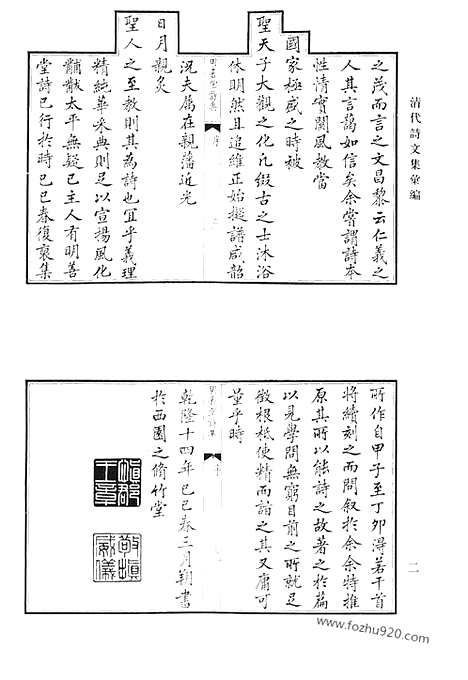 清代詩文集彙編
之茂而言之文昌黎云仁義之
人其言藹如信矣余嘗謂詩本
性情實關風教當
國家極盛之時被
聖天子大觀之化凡綴古之士沐浴
休明然且追維正始擬譜咸韶
明善堂詩集 序
況夫屬在親藩近光
日月親炙
聖人之至教則其為詩也宜乎義理
精純華采典則足以宣揚風化
黼黻太平無疑已主人有明善
堂詩已行於時己巳春復裒集
二
所作自甲子至丁卯得若干首
將續刻之而問敘於余余特推
原其所以能詩之故著之於篇
以見學問無窮目前之所就足
徵根柢使精而詣之其又庸可
量乎時
明善堂詩集 序
乾隆十四年己巳春三月朔書
於西園之脩竹堂
慎郡王章
敬慎威儀
www.fozhu920.com